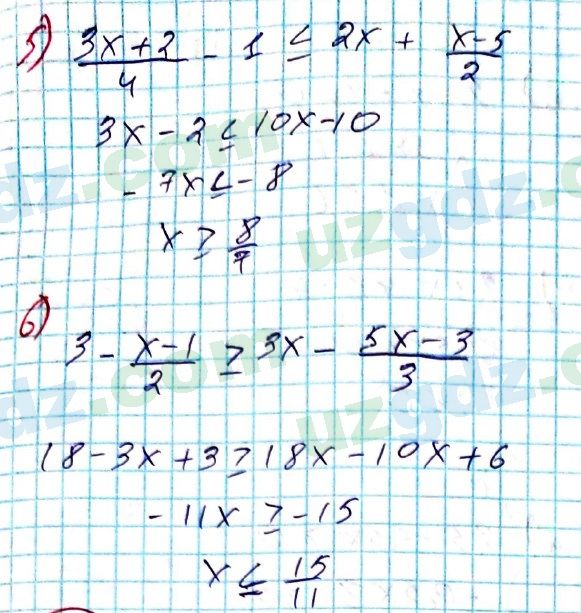 5) (3x+2)/4 - 1 ≤ 2x + (x-5)/2
3x - 2 ≤ 10x - 10
- 7x ≤ - 8
x ≥ 8/7
6) 3 - (x-1)/2 ≥ 3x - (5x-3)/3
18 - 3x + 3 ≥ 18x - 10x + 6
- 11x ≥ - 15
x ≤ 15/11
uzgdz.com
uzgdz.com